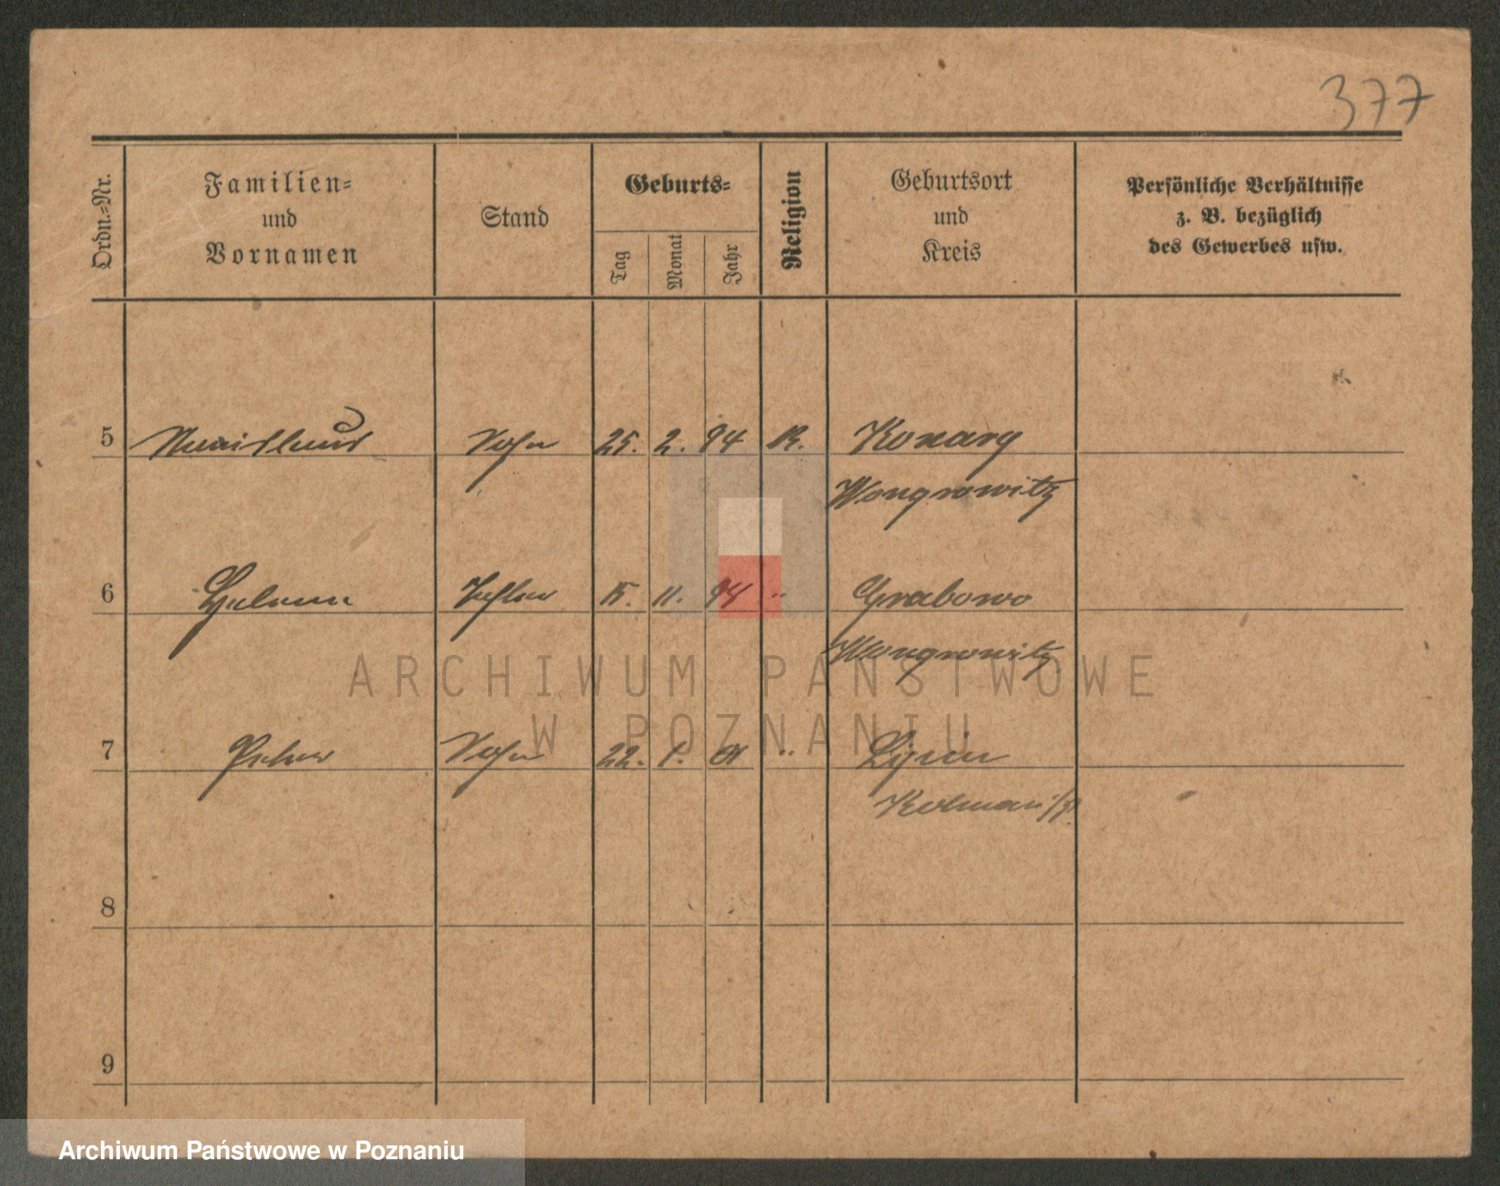 377
Ordn.-Nr.
Familien-
und
Vornamen
Stand
Geburts-
Tag
Monat
Jahr
Religion
Geburtsort
und
Kreis
Persönliche Verhältnisse
z. B. bezüglich
des Gewerbes usw.
5 Sohn 25. 2. 94 K. Konary
Wongrowitz
6 Helena Tochter 15. 11. 94 " Grabowo
Wongrowitz
ARCHIWUM PAŃSTWOWE
W POZNANIU
7 Peter Sohn 22. 1. 01 " Lipin
Kolmar i/P.
8
9
Archiwum Państwowe w Poznaniu